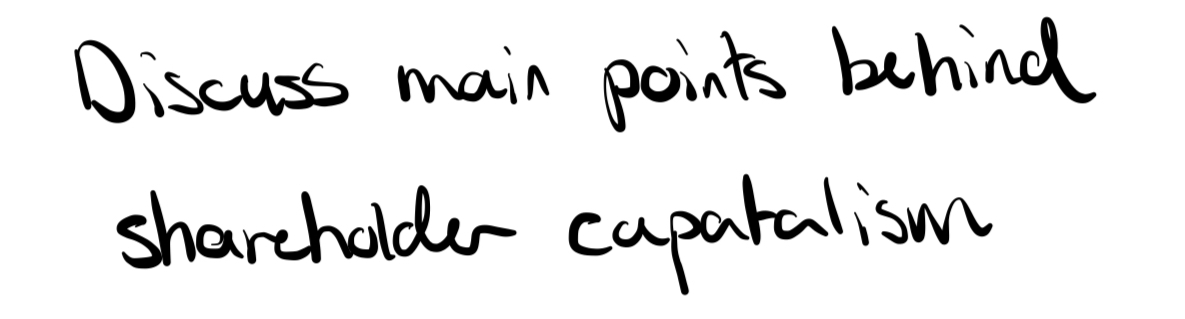 Discuss main points behind
shareholder capatalism